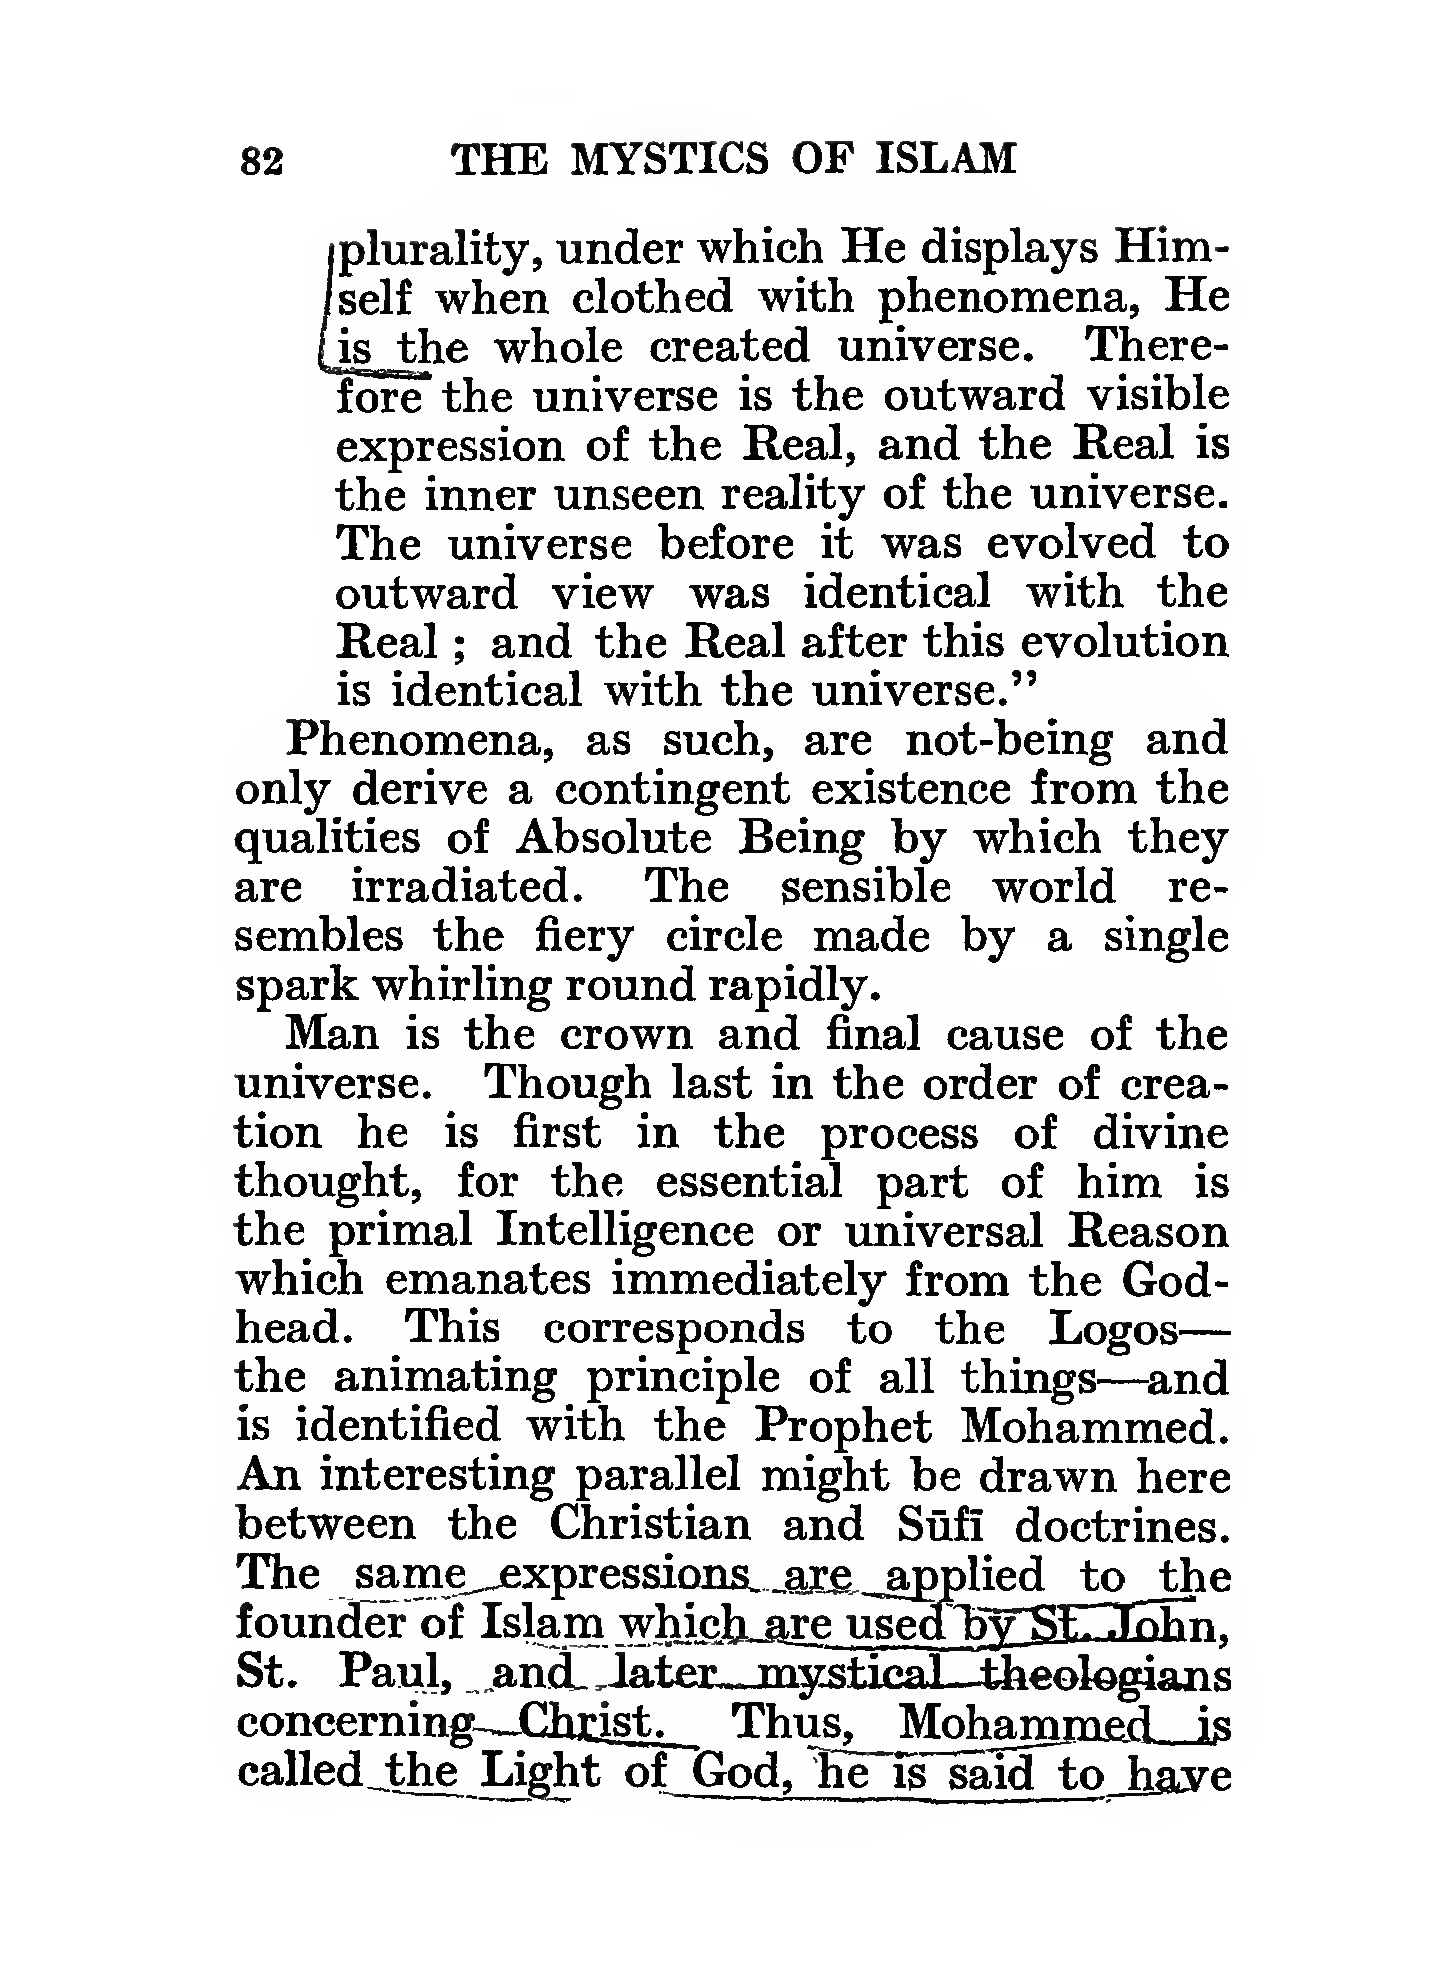 82 THE MYSTICS OF ISLAM
plurality, under which He displays Him-
self when clothed with phenomena, He
is the whole created universe. There-
fore the universe is the outward visible
expression of the Real, and the Real is
the inner unseen reality of the universe.
The universe before it was evolved to
outward view was identical with the
Real ; and the Real after this evolution
is identical with the universe.”
Phenomena, as such, are not-being and
only derive a contingent existence from the
qualities of Absolute Being by which they
are irradiated. The sensible world re-
sembles the fiery circle made by a single
spark whirling round rapidly.
Man is the crown and final cause of the
universe. Though last in the order of crea-
tion he is first in the process of divine
thought, for the essential part of him is
the primal Intelligence or universal Reason
which emanates immediately from the God-
head. This corresponds to the Logos—
the animating principle of all things—and
is identified with the Prophet Mohammed.
An interesting parallel might be drawn here
between the Christian and Sūfī doctrines.
The same expressions are applied to the
founder of Islam which are used by St. John,
St. Paul, and later mystical theologians
concerning Christ. Thus, Mohammed is
called the Light of God, he is said to have